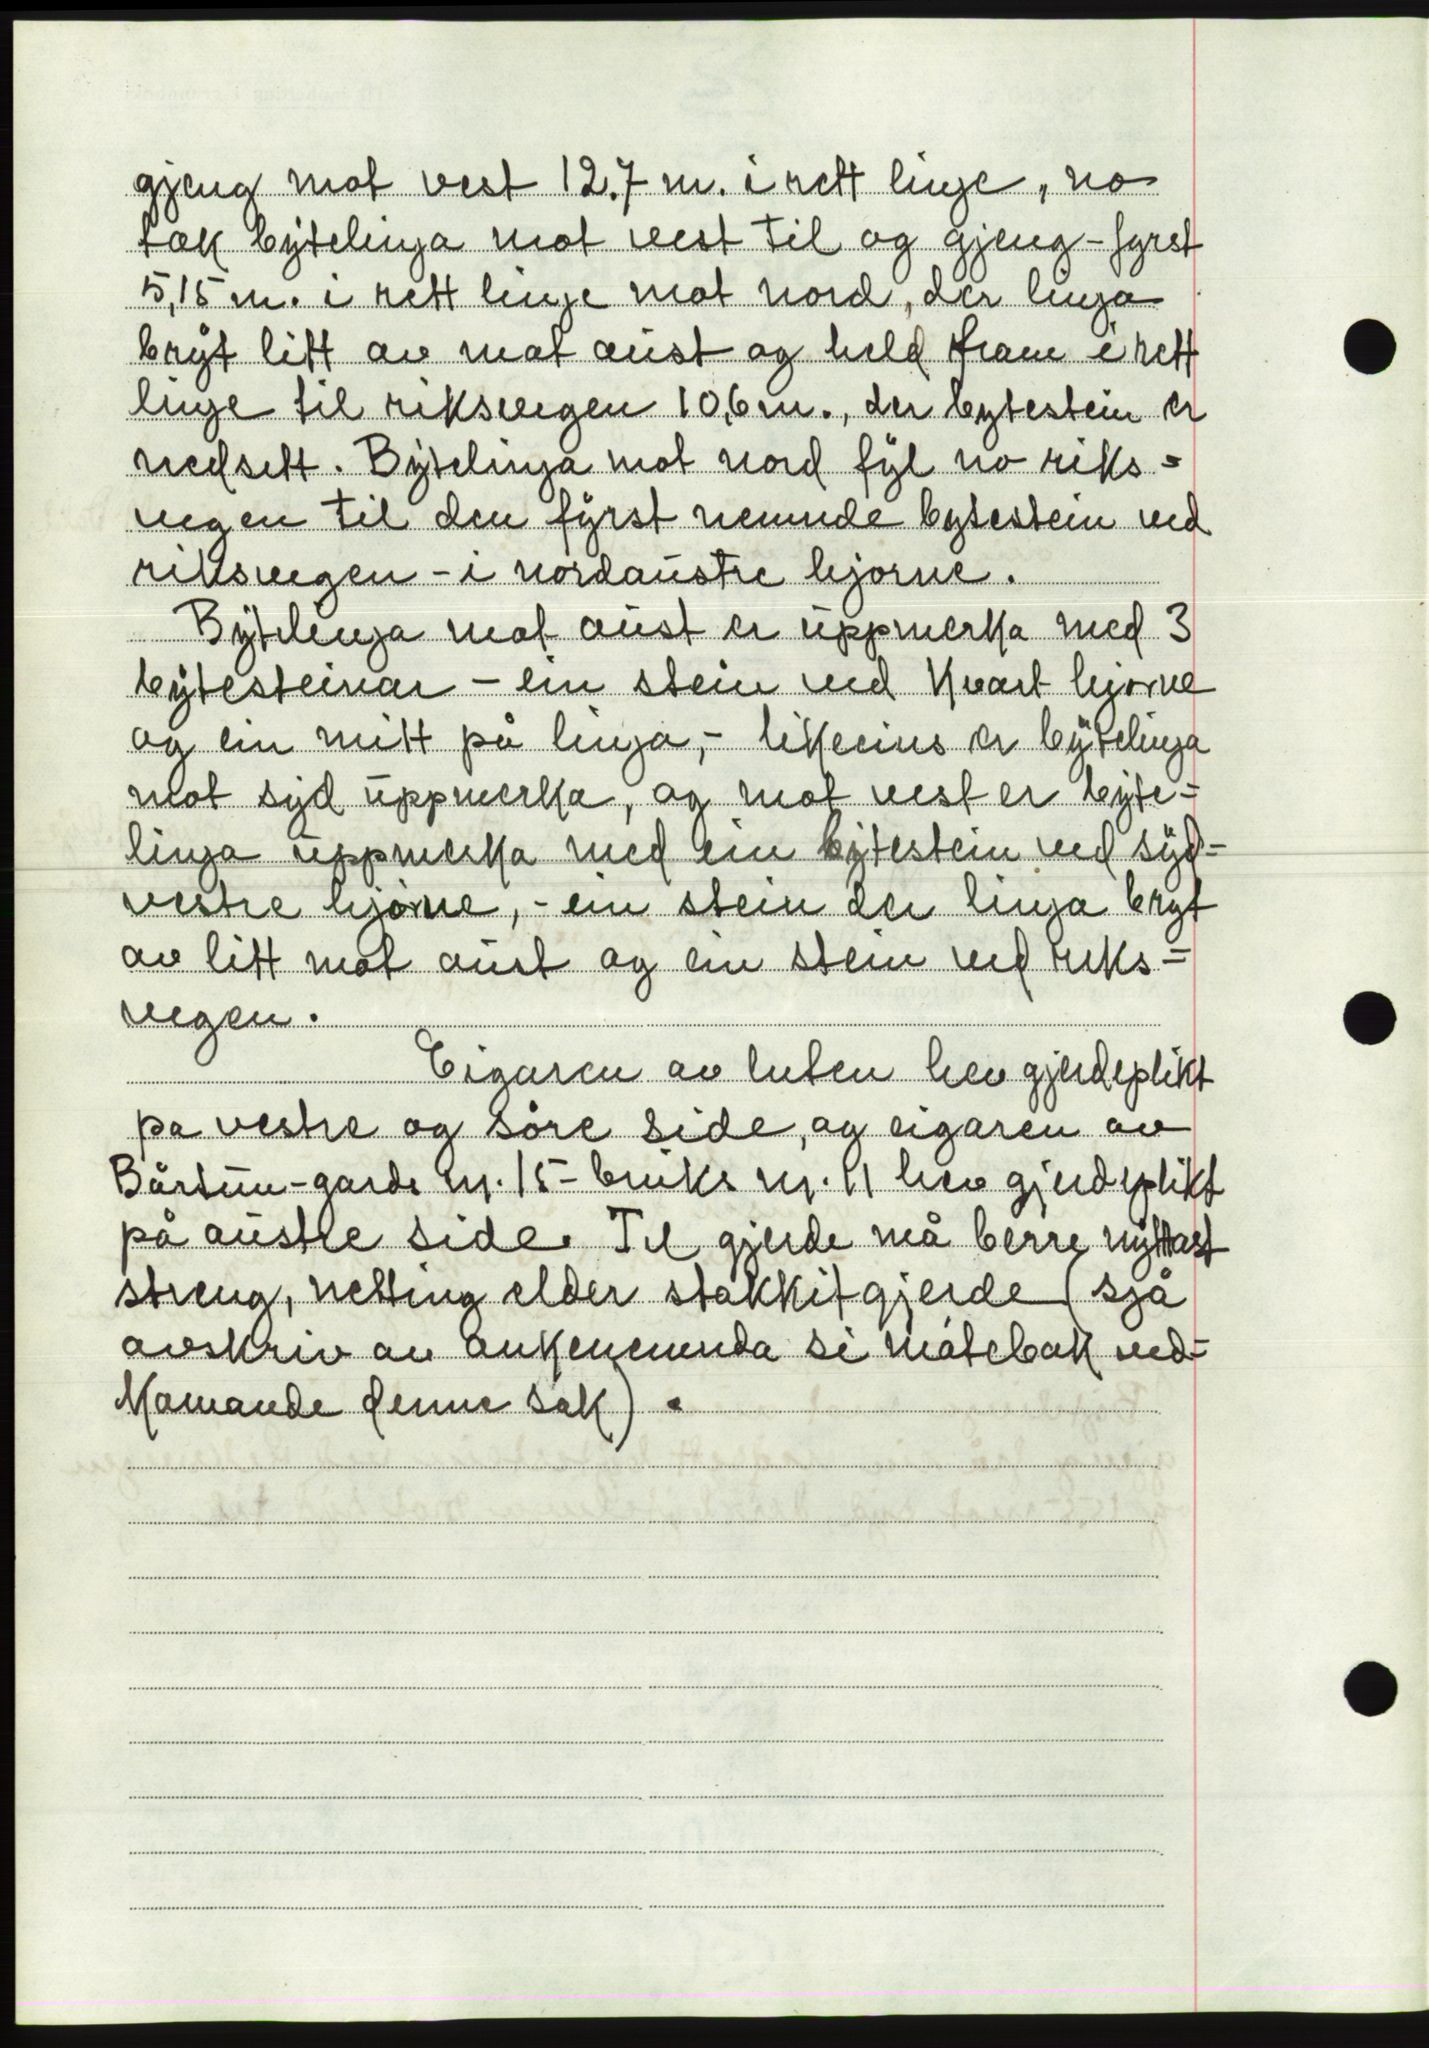 gjeng mot vest 12.7 m. i rett linje, no
tæk bytelinja mot vest til og gjeng - fyrst
5,15 m. i rett linje mot nord, der linja
bryt litt av mot aust og held fram i rett
linje til riksvegen 10,6 m., der bytestein er
nedsett. Bytelinja mot nord fyl no riks=
vegen til den fyrst nemnde bytestein ved
riksvegen - i nordaustre hjorne.
Bytelinja mot aust er uppmerka med 3
bytesteinar - ein stein ved kvart hjorne
og ein mitt på linja,- likeeins er bytelinja
mot syd uppmerka, og mot vest er byte=
linja uppmerka med ein bytestein ved syd=
vestre hjorne, - ein stein der linja bryt
av litt mot aust og ein stein ved riks=
vegen.
Eigaren av luten hev gjerdeplikt
pa vestre og söre side, og eigaren av
Bårtun - gards nr. 15 - bruks nr. 11 hev gjerdeplikt
på austre side. Til gjerde må berre nyttast
streng, netting elder stakkitgjerde (sjå
avskriv av ankenemnda si møtebok ved=
komande denne sak).